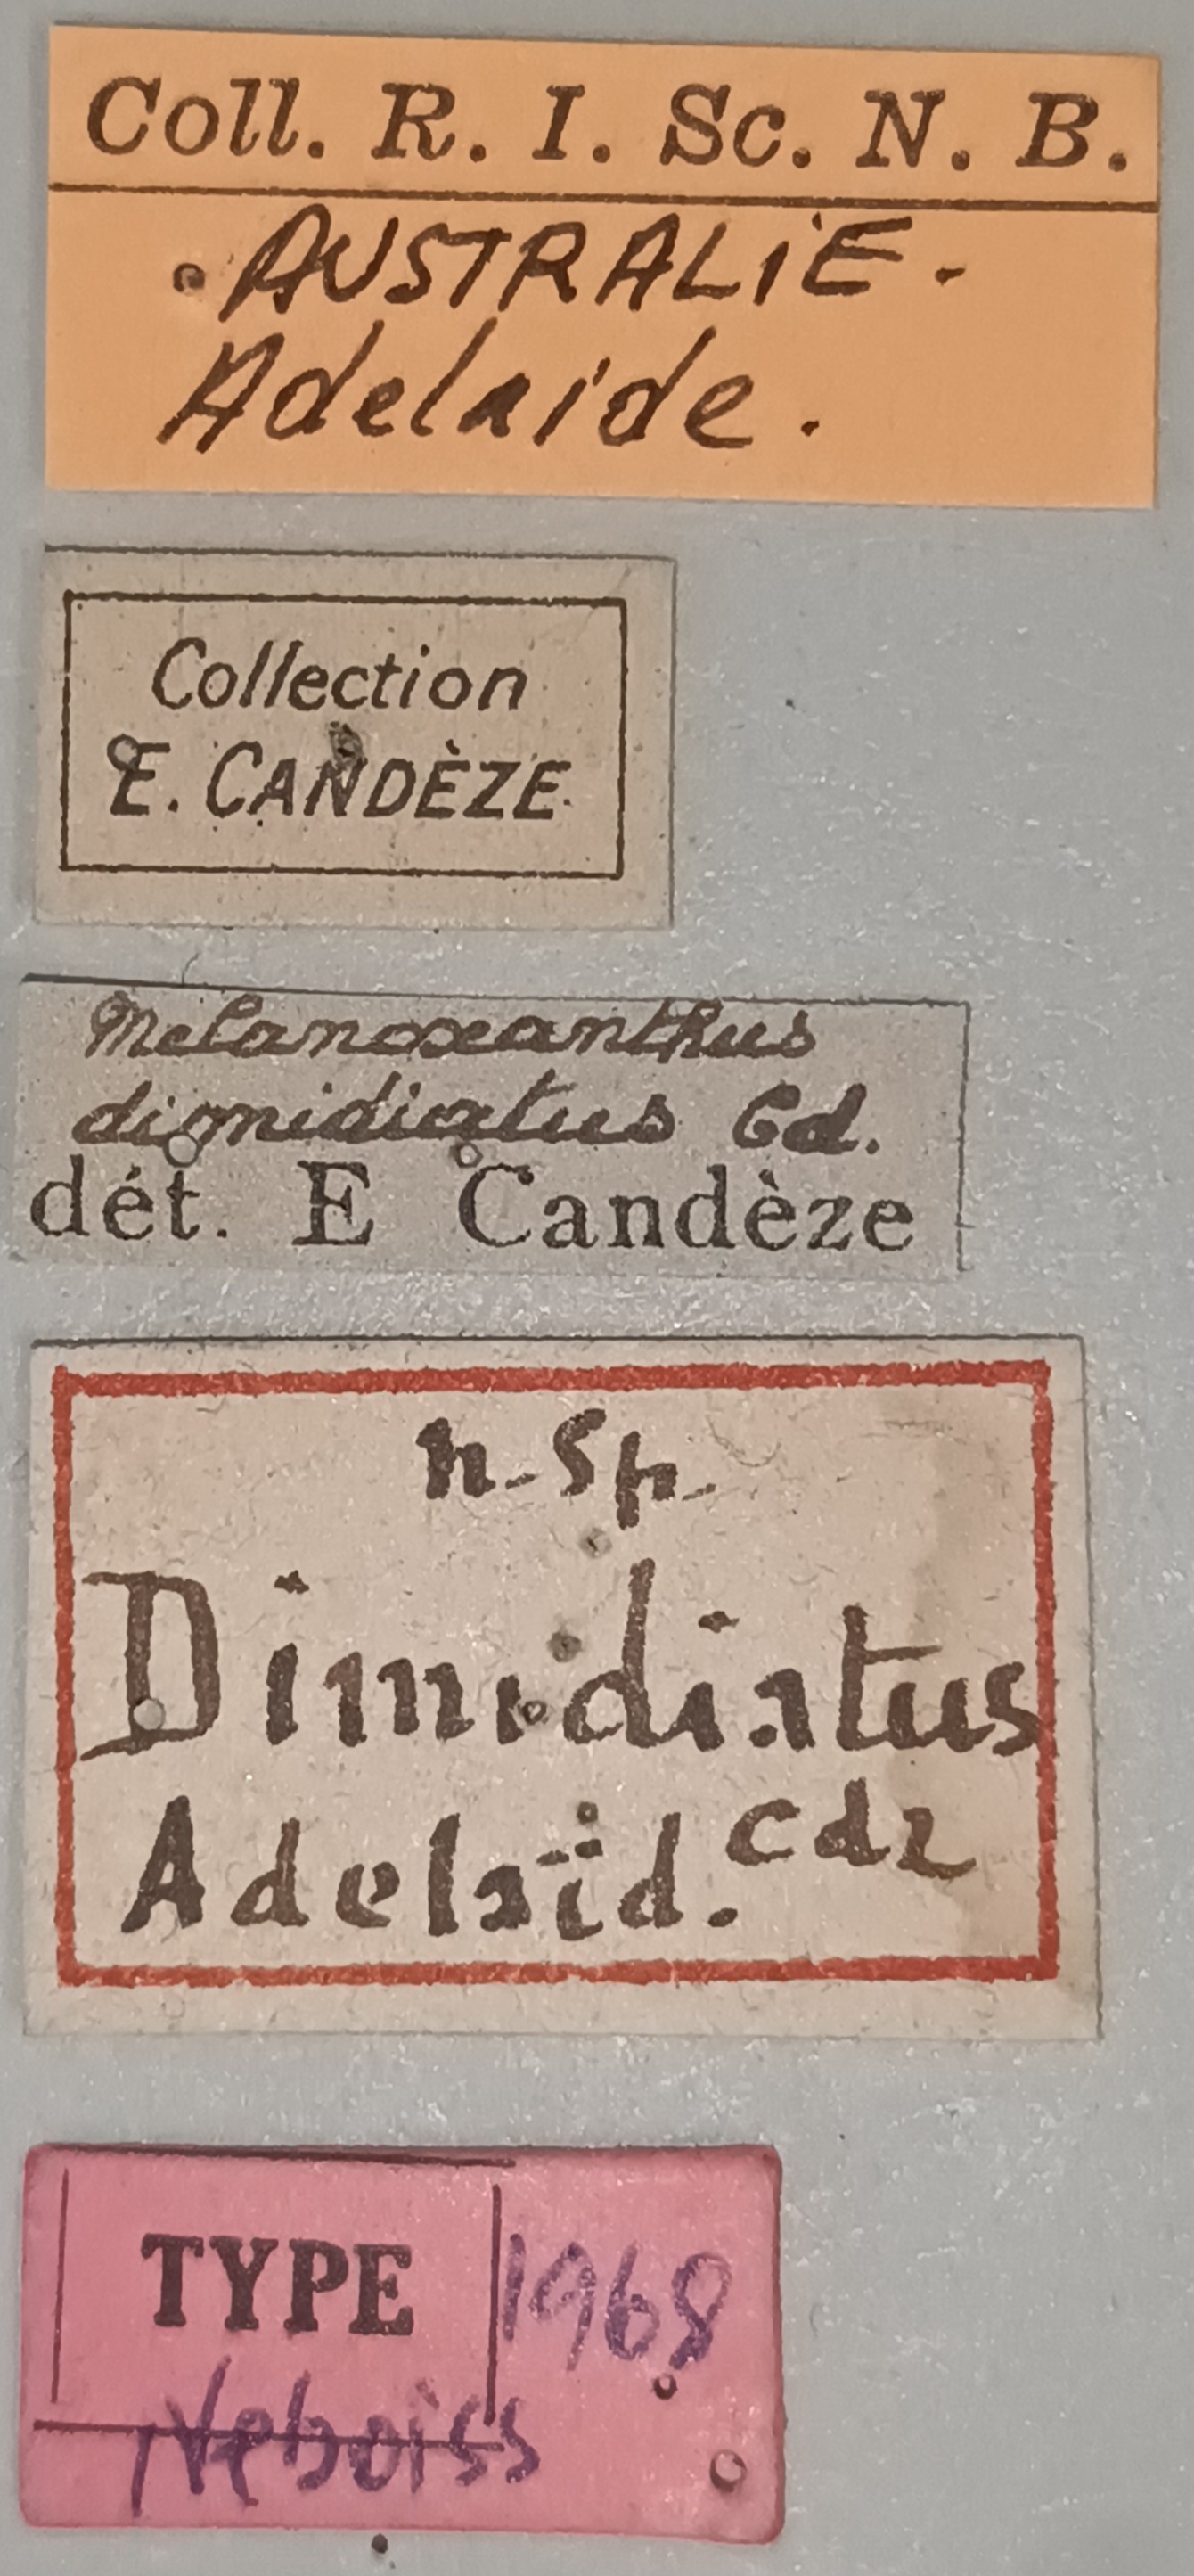 Coll. R. I. Sc. N. B.
AUSTRALiE.
Adelaide.
Collection
E. CANDÈZE
Melanoxanthus
dimidiatus Cd.
dét. E Candèze
n. sp.
Dimidiatus
Adelaïd. cdz
TYPE 1968
Neboiss